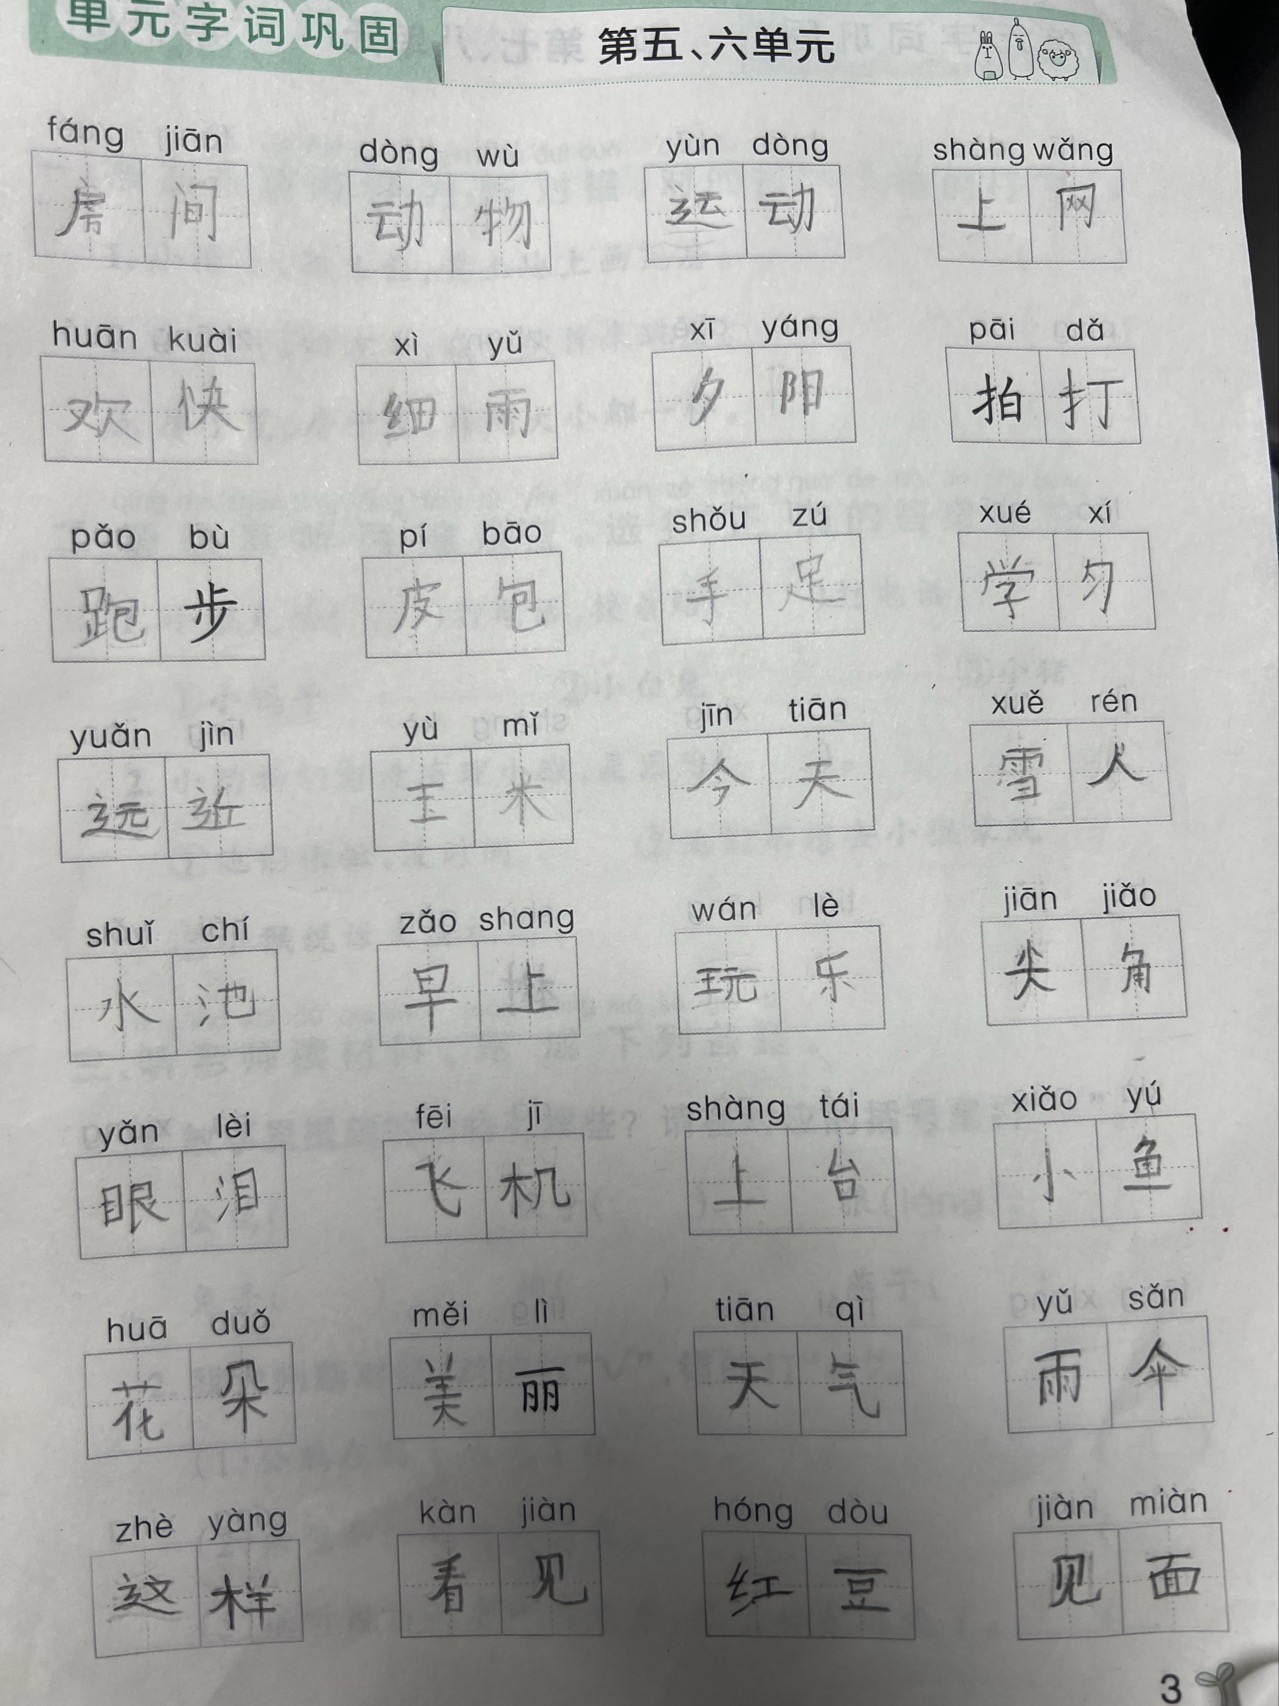 单元字词巩固 第五、六单元
fáng jiān dòng wù yùn dòng shàng wǎng
房间 动物 运动 上网
huān kuài xì yǔ xī yáng pāi dǎ
欢快 细雨 夕阳 拍打
pǎo bù pí bāo shǒu zú xué xí
跑步 皮包 手足 学
yuǎn jìn yù mǐ jīn tiān xuě rén
远近 玉米 今天 雪人
shuǐ chí zǎo shang wán lè jiān jiǎo
水池 早上 玩乐 尖角
yǎn lèi fēi jī shàng tái xiǎo yú
眼泪 飞机 上台 小鱼
huā duǒ měi lì tiān qì yǔ sǎn
花朵 美丽 天气 雨伞
zhè yàng kàn jiàn hóng dòu jiàn miàn
这样 看见 红豆 见面
3